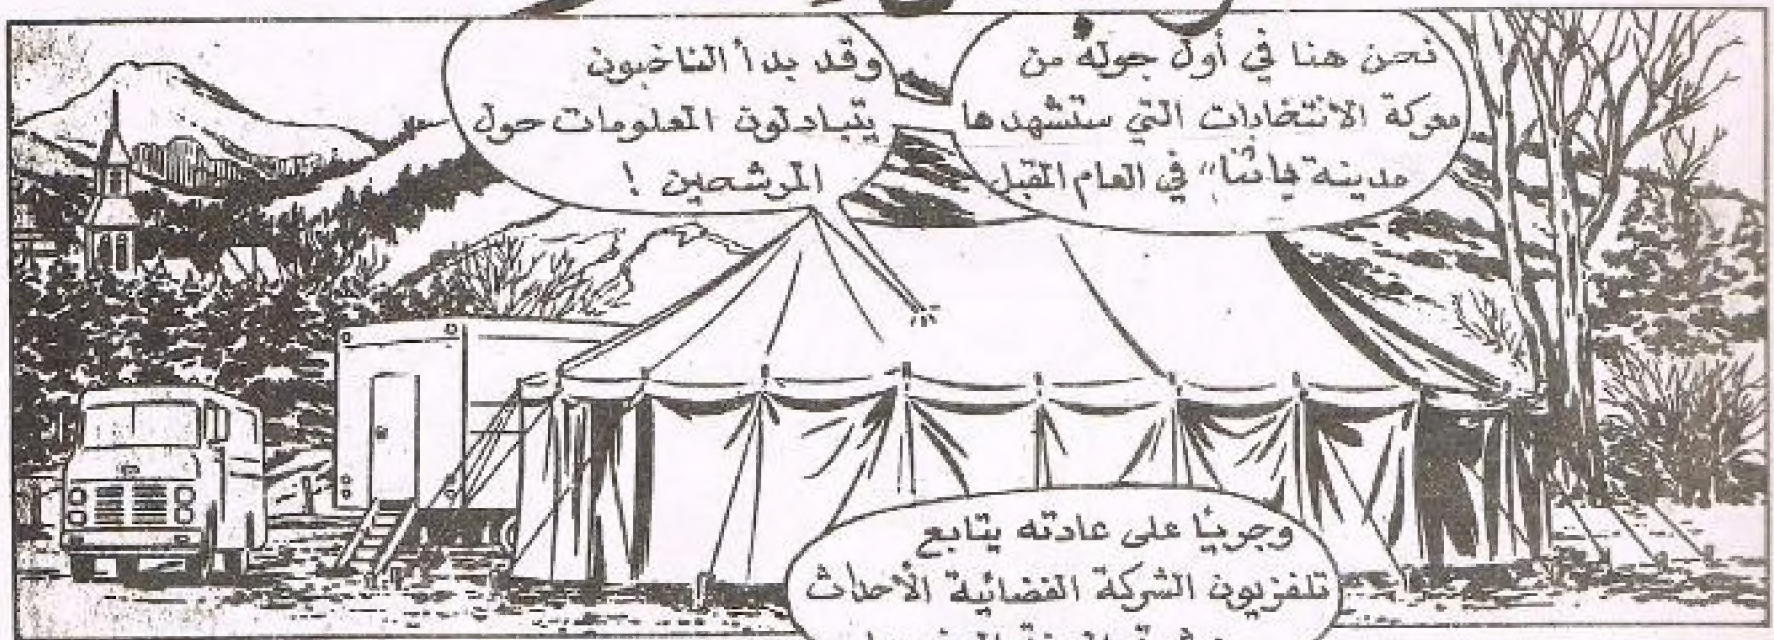 نحن هنا في أول جولة من
معركة الانتخابات التي ستشهدها
مدينة "ياثنا" في العام المقبل
وقد بدأ الناخبون
يتبادلون المعلومات حول
المرشحين !
وجريًا على عادته يتابع
تلفزيون الشركة الفضائية الأحداث